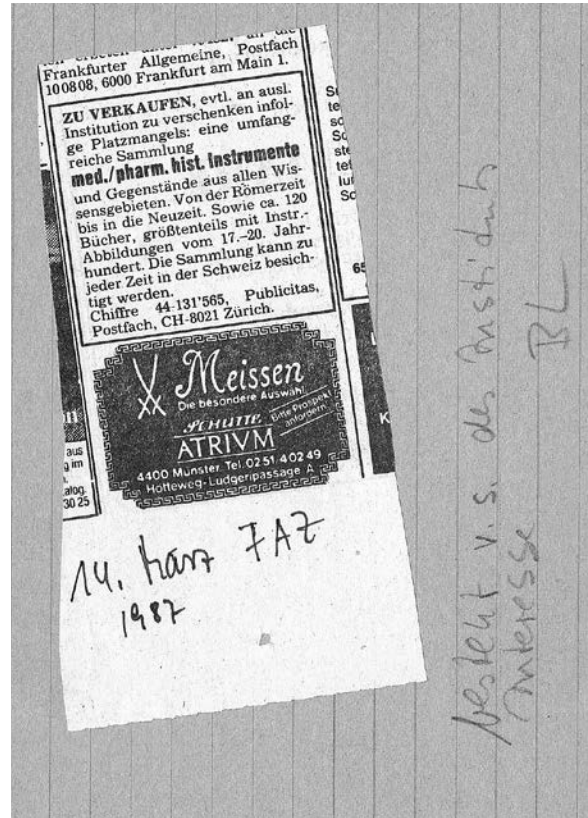 Frankfurter Allgemeine, Postfach
100808, 6000 Frankfurt am Main 1.
ZU VERKAUFEN, evtl. an ausl.
Institution zu verschenken infol-
ge Platzmangels: eine umfang-
reiche Sammlung
med./pharm. hist. Instrumente
und Gegenstände aus allen Wis-
sensgebieten. Von der Römerzeit
bis in die Neuzeit. Sowie ca. 120
Bücher, größtenteils mit Instr.-
Abbildungen vom 17.–20. Jahr-
hundert. Die Sammlung kann zu
jeder Zeit in der Schweiz besich-
tigt werden.
Chiffre 44-131'565, Publicitas,
Postfach, CH-8021 Zürich.
Meissen
Die besondere Auswahl
SCHÜTTE
Bitte Prospekt
anfordern
ATRIVM
4400 Münster Tel. 0251 40249
Hötteweg-Ludgeripassage A
aus
g im
alog.
30 25
14. März FAZ
1987
besteht v.s. des Instituts
Interesse
BL